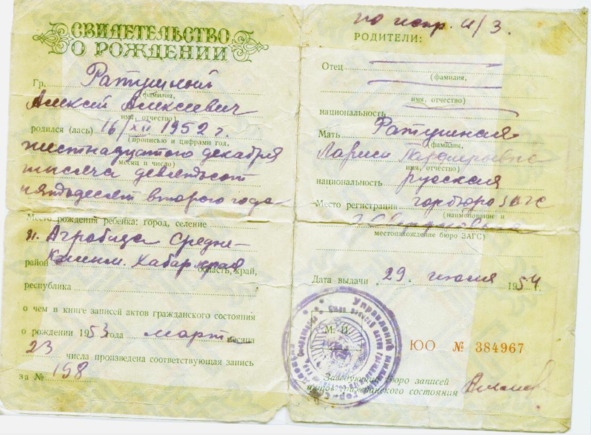 СВИДЕТЕЛЬСТВО
О РОЖДЕНИИ
Гр. Ратушный
(фамилия,
Алексей Алексеевич
имя, отчество)
родился (лась) 16/XII 1952 г.
(прописью и цифрами год,
шестнадцатого декабря
месяц и число)
тысяча девятьсот
пятьдесят второго года
Место рождения ребенка: город, селение
п. Агробаза Средне-
район Хабар. край область, край,
республика
о чем в книге записей актов гражданского состояния
о рождении 1953 года март месяца
23 числа произведена соответствующая запись
за № 198
по испр. И/З.
РОДИТЕЛИ:
Отец
(фамилия,
имя, отчество)
национальность
Мать Ратушная
(фамилия,
Лариса
имя, отчество)
национальность русская
Место регистрации горбюро ЗАГС
(наименование и
местонахождение бюро ЗАГС)
Дата выдачи 29 июля 1954 г.
М. П.
ЮО № 384967
бюро записей
гражданского состояния